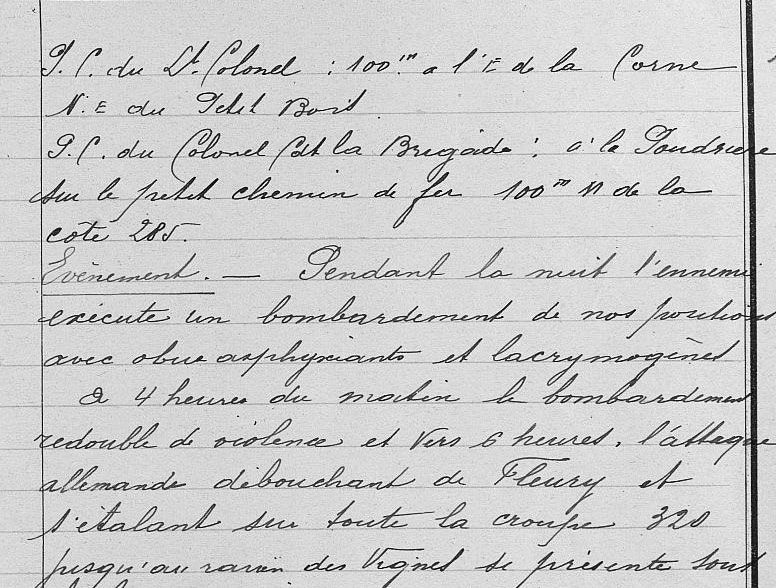 P.C. du Lt. Colonel : 100m. a l'E de la Corne
N.E du Petit Bois.
P.C. du Colonel Cdt la Brigade : à la Poudrière
sur le petit chemin de fer 100m N de la
cote 285.
Evènement. — Pendant la nuit l'ennemi
exécute un bombardement de nos positions
avec obus asphyxiants et lacrymogènes
à 4 heures du matin le bombardement
redouble de violence et vers 6 heures, l'attaque
allemande débouchant de Fleury et
s'étalant sur toute la croupe 320
jusqu'au ravin des Vignes se présente sous